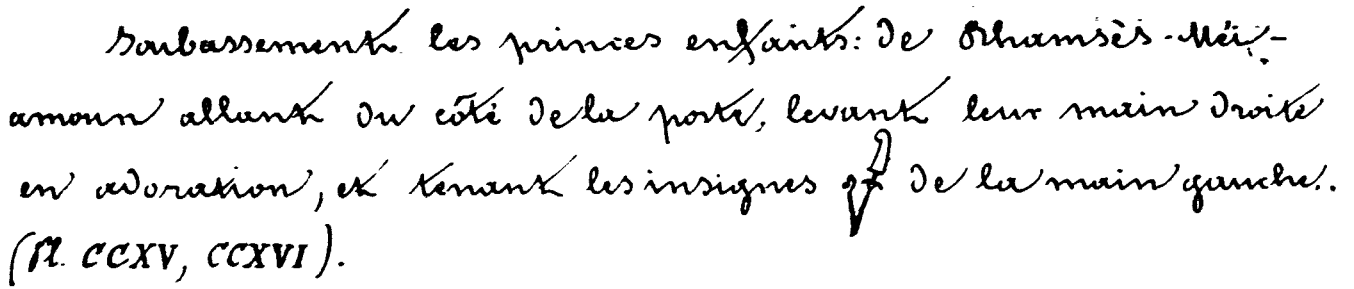 Soubassement les princes enfants: de Rhamsès-Méi-
amoun allant du côté de la porte, levant leur main droite
en adoration, et tenant les insignes de la main gauche.
(Pl. CCXV, CCXVI).